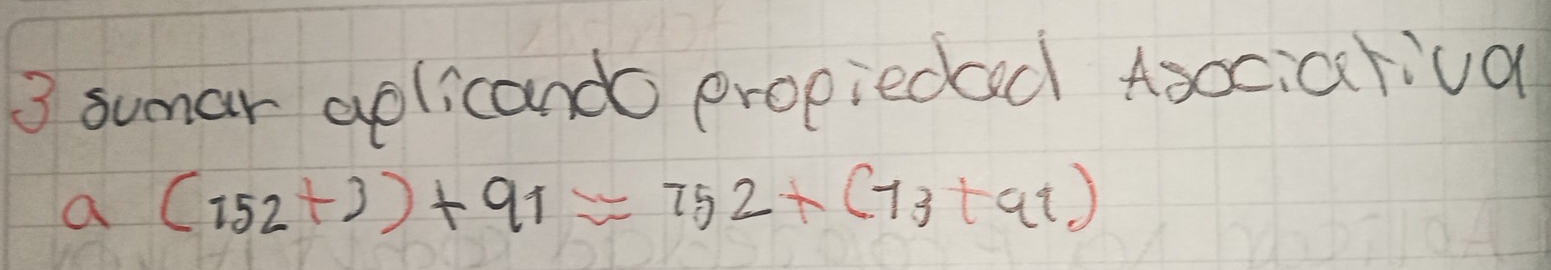 3 sumar aplicando propiedad Asociativa
a (152+3)+91 = 152+(13+91)